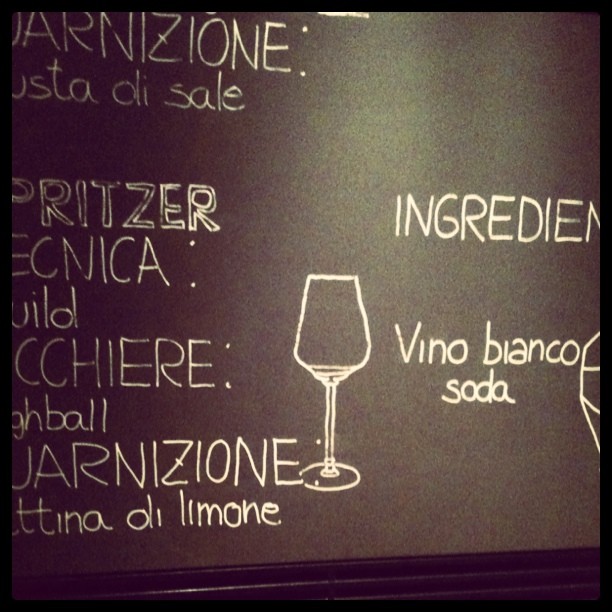 UARNIZIONE:
usta di sale
PRITZER
ECNICA :
uild
CCHIERE:
ghball
UARNIZIONE:
ttina di limone
INGREDIEN
Vino bianco
soda